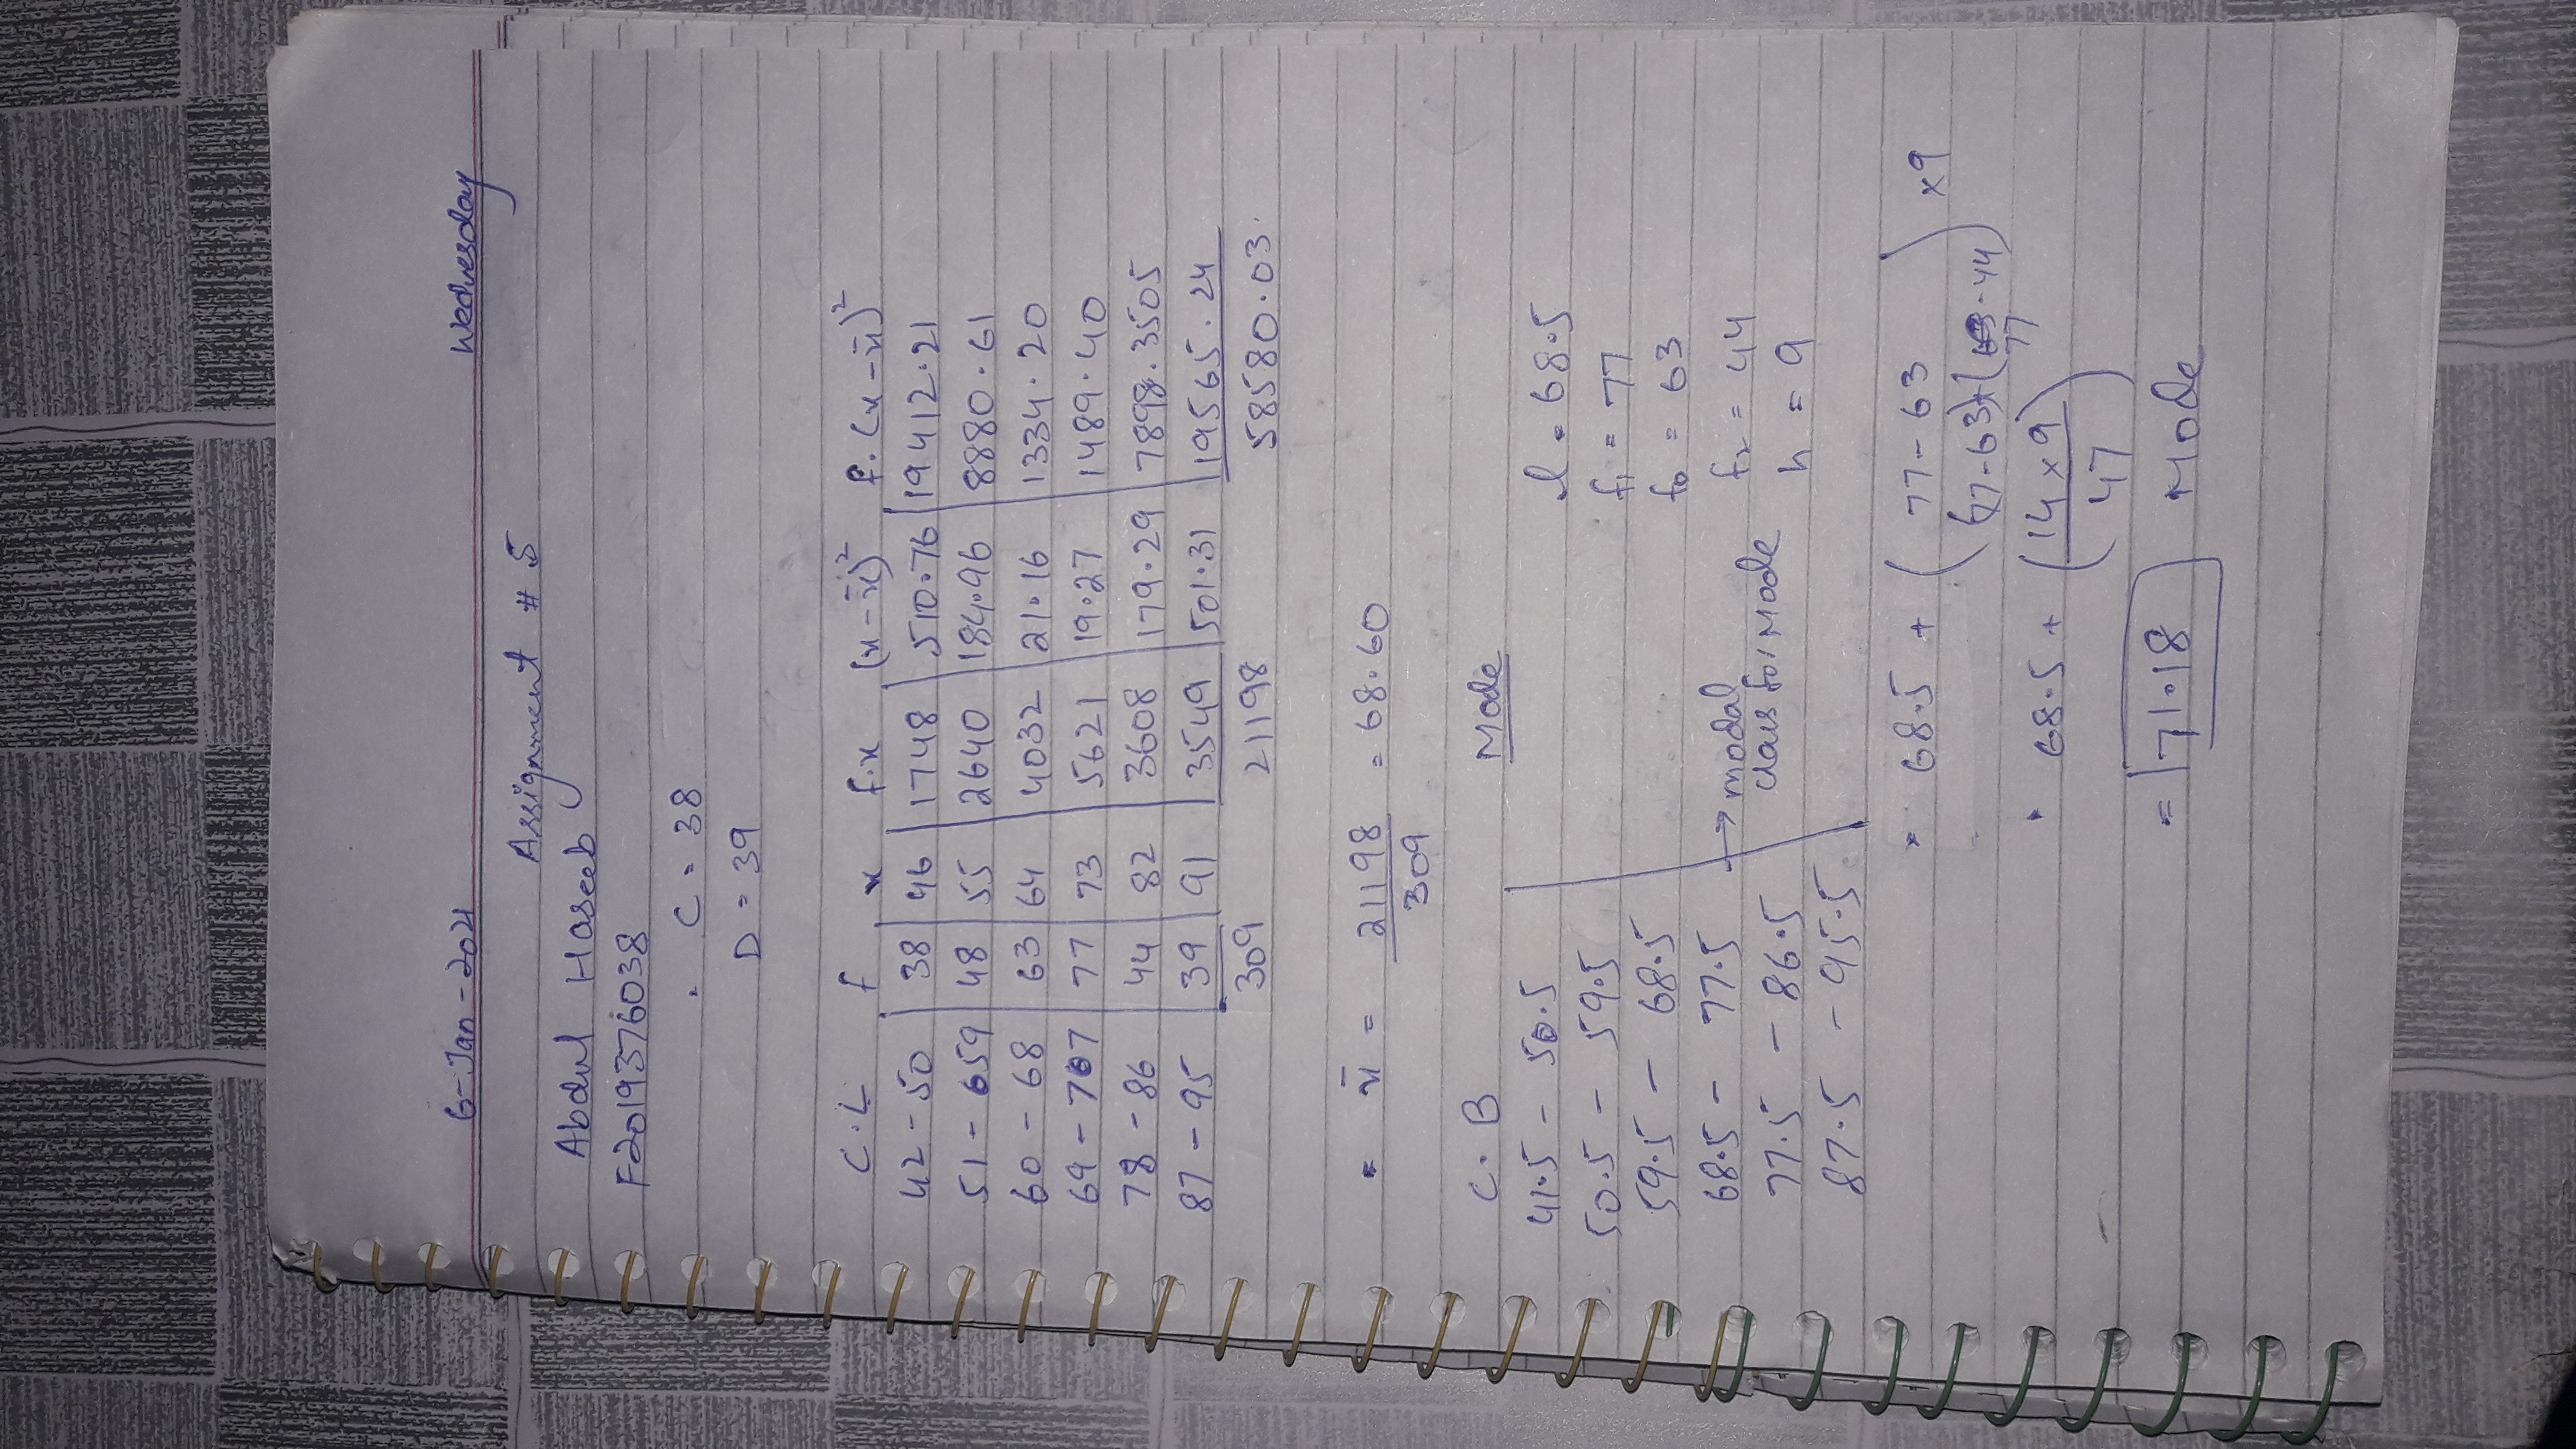 6-Jan-2021 Wednesday
Assignment # 5
Abdul Haseeb
F2019376038
C = 38
D = 39
C.L f x f.x (x-x̄)² f.(x-x̄)²
42-50 38 46 1748 510.76 19412.21
51-659 48 55 2640 184.96 8880.61
60-68 63 64 4032 21.16 1334.20
69-767 77 73 5621 19.27 1489.40
78-86 44 82 3608 179.29 7898.3505
87-95 39 91 3549 501.31 19565.24
309 21198 58580.03
= x̄ = 21198 = 68.60
309
Mode
C.B
41.5 - 50.5 l = 68.5
50.5 - 59.5 f1 = 77
59.5 - 68.5 f0 = 63
68.5 - 77.5 → modal f2 = 44
77.5 - 86.5 class for Mode h = 9
87.5 - 95.5
= 68.5 + (77-63) x9
(77-63)+(77-44)
= 68.5 + (14x9)
47
= 71.18 Mode